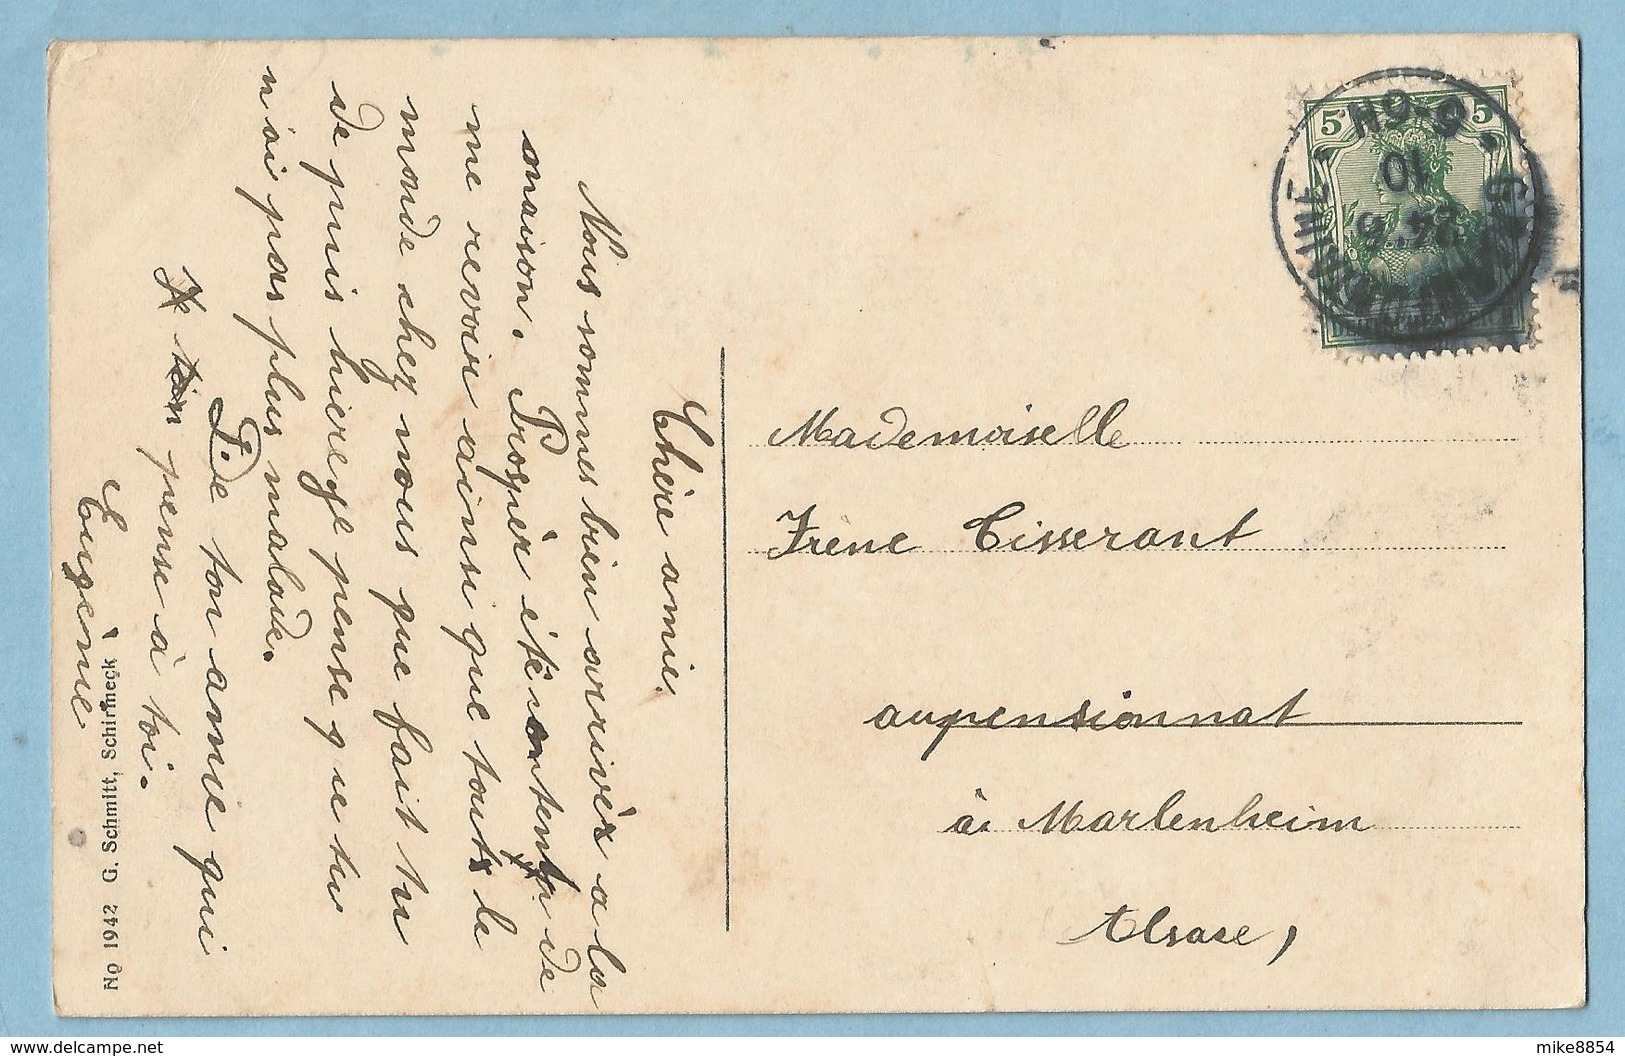 Chère amie.
Nous sommes bien arrivèr a la
maison. Prosper ètè contente de
me revoir ainsi que tout la
monde chez nous que fait tu
de puis hierege pense que tu
n'ai pas plus malade.
D.de ton amie qui
pense à toi.
Eugène
No 1942 G. Schmitt, Schirmeck
5 5
5-6N
10
24 5
Mademoiselle
Irène Tisserant
au pensionnat
à Marlenheim
Alsace,
mike8854